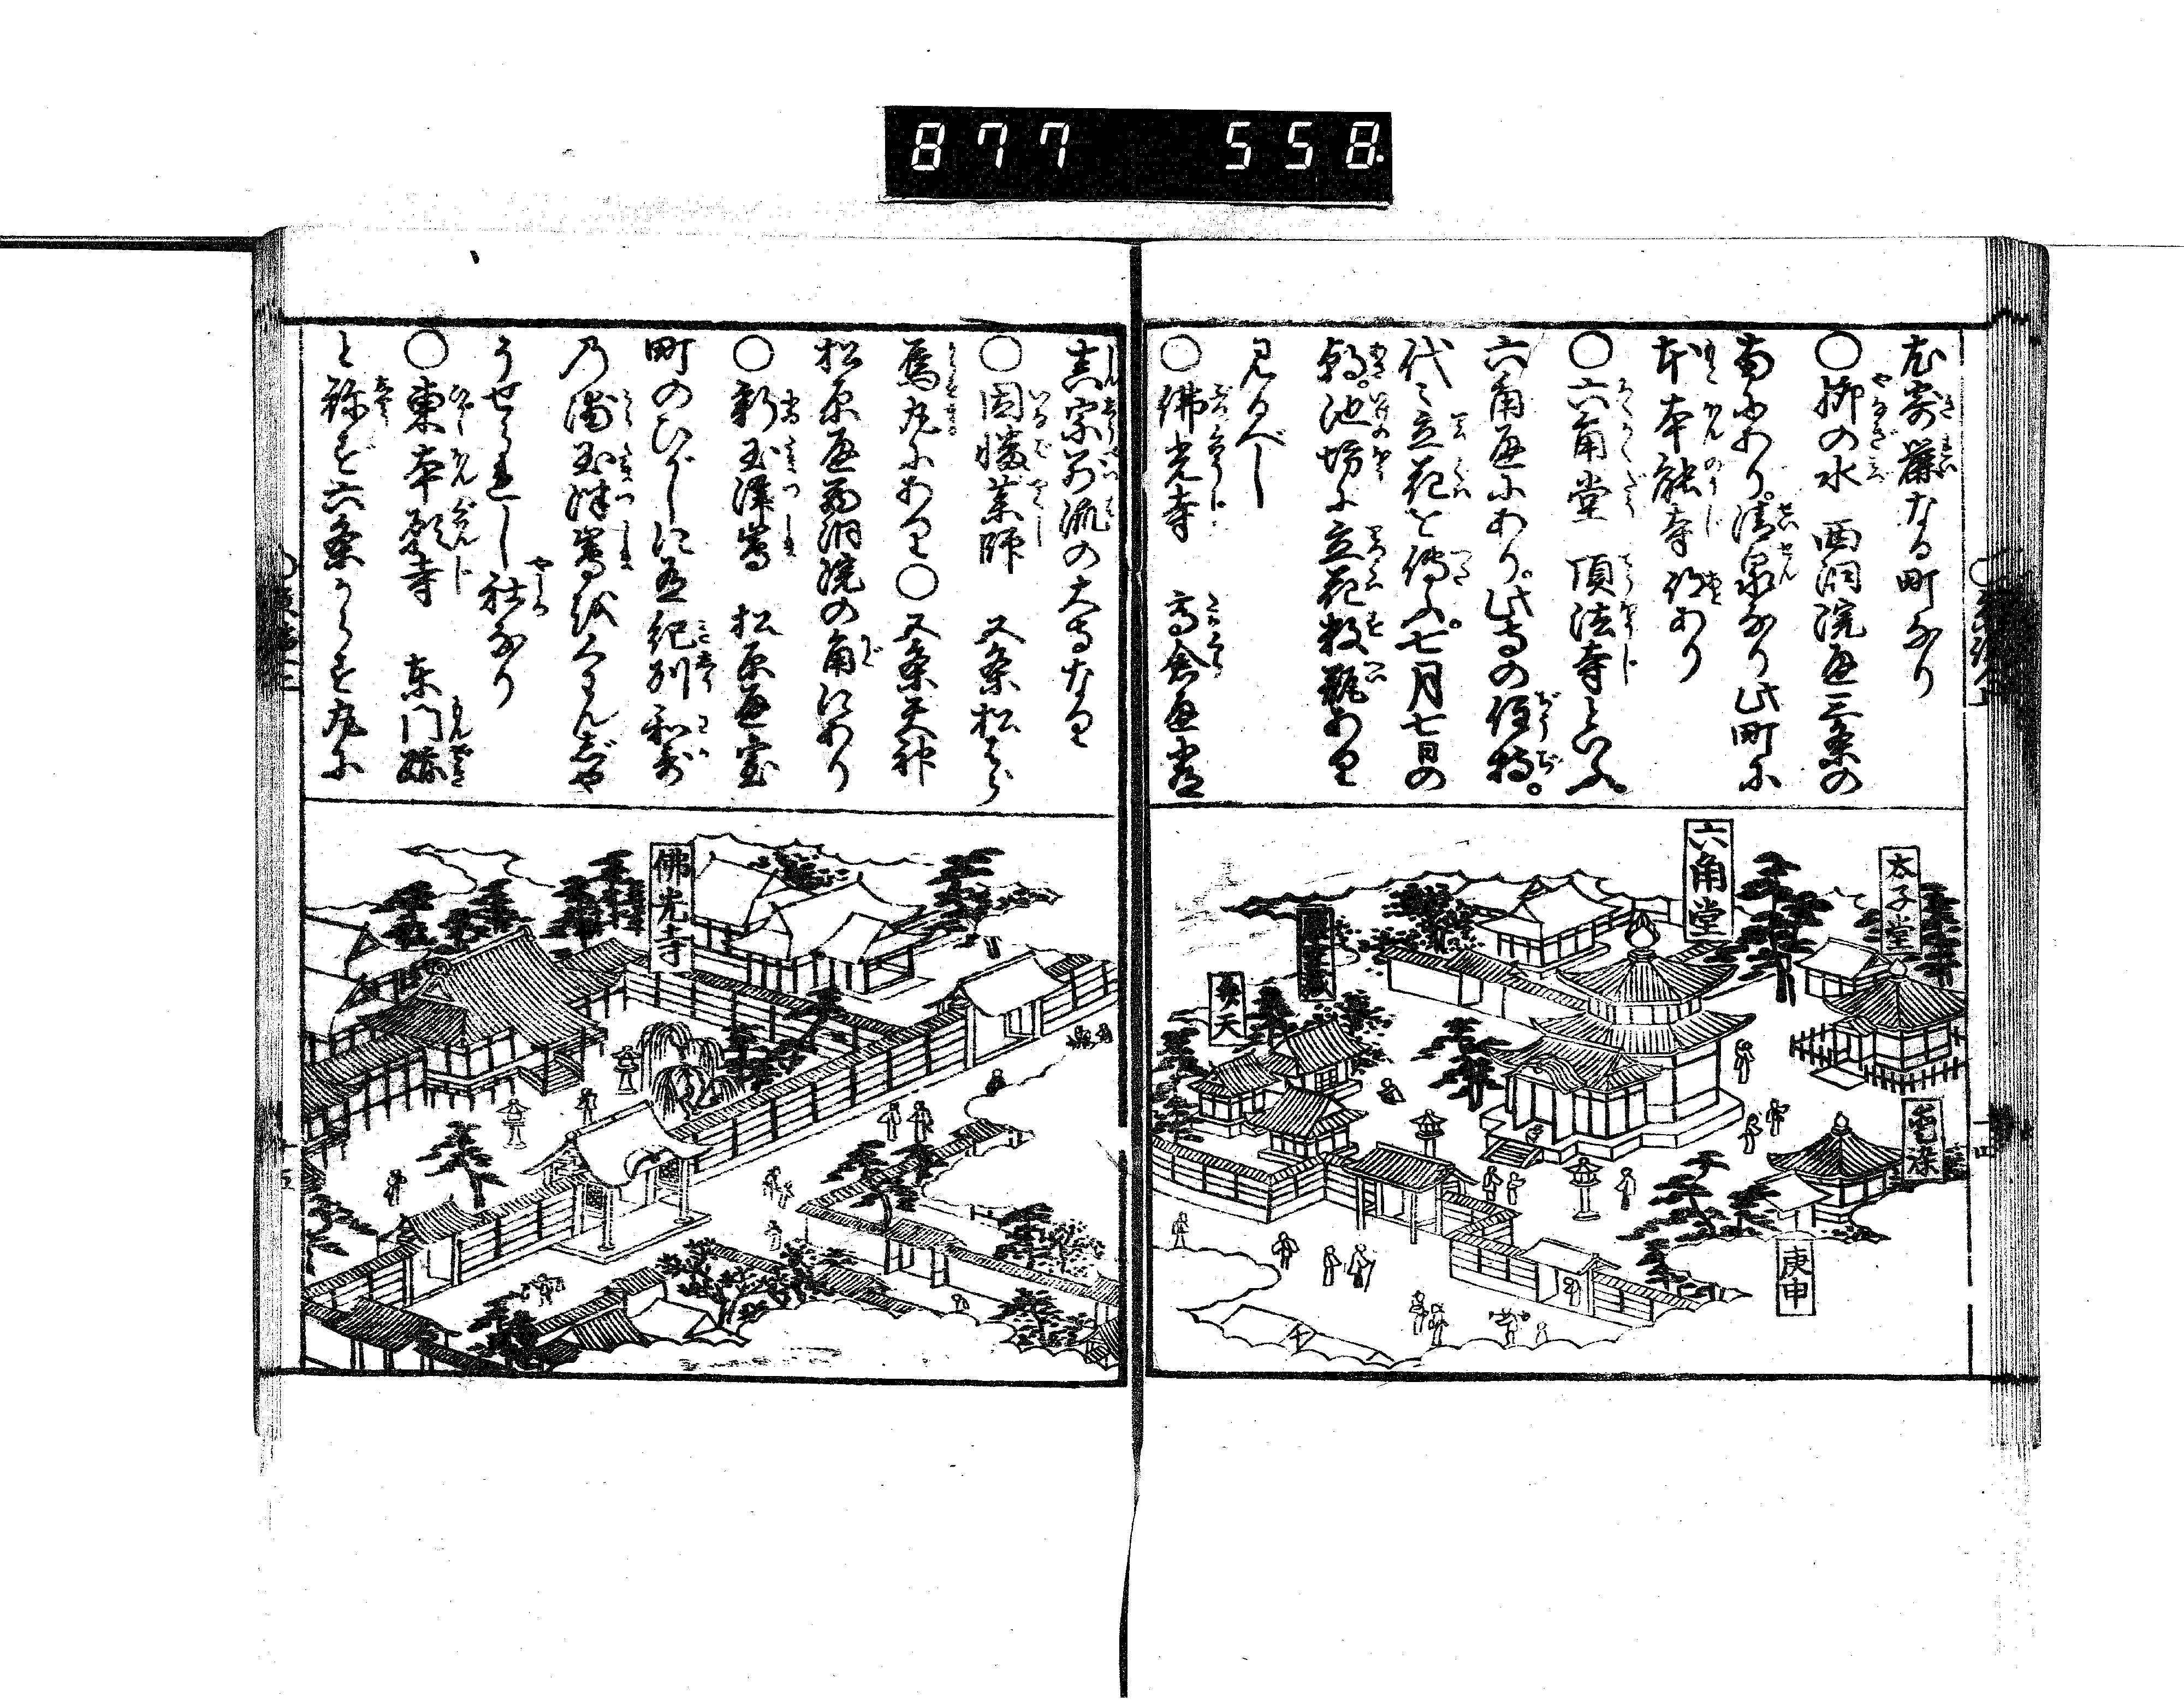 877 558.
なる町なり
○柳の水 西洞院通三条の
南にあり。清泉なり此町に
本能寺跡あり
○六角堂 頂法寺といふ。
六角通にあり。此寺の住持。
代々立花を傳ふ。七月七日の
朝。池坊に立花数瓶あり
見るべし
○佛光寺 高倉通
真宗別流の大寺なり
○因幡薬師 五条松ばら
烏丸にあり○五条天神
松原通西洞院の角にあり
○新玉津嶋 松原通室
町のひがしに有紀州和哥
乃浦玉津嶋をくはんじや
うせられし社なり
○東本願寺 東門跡
と称ず六条からす丸に
六角堂
太子堂
庚申
佛光寺